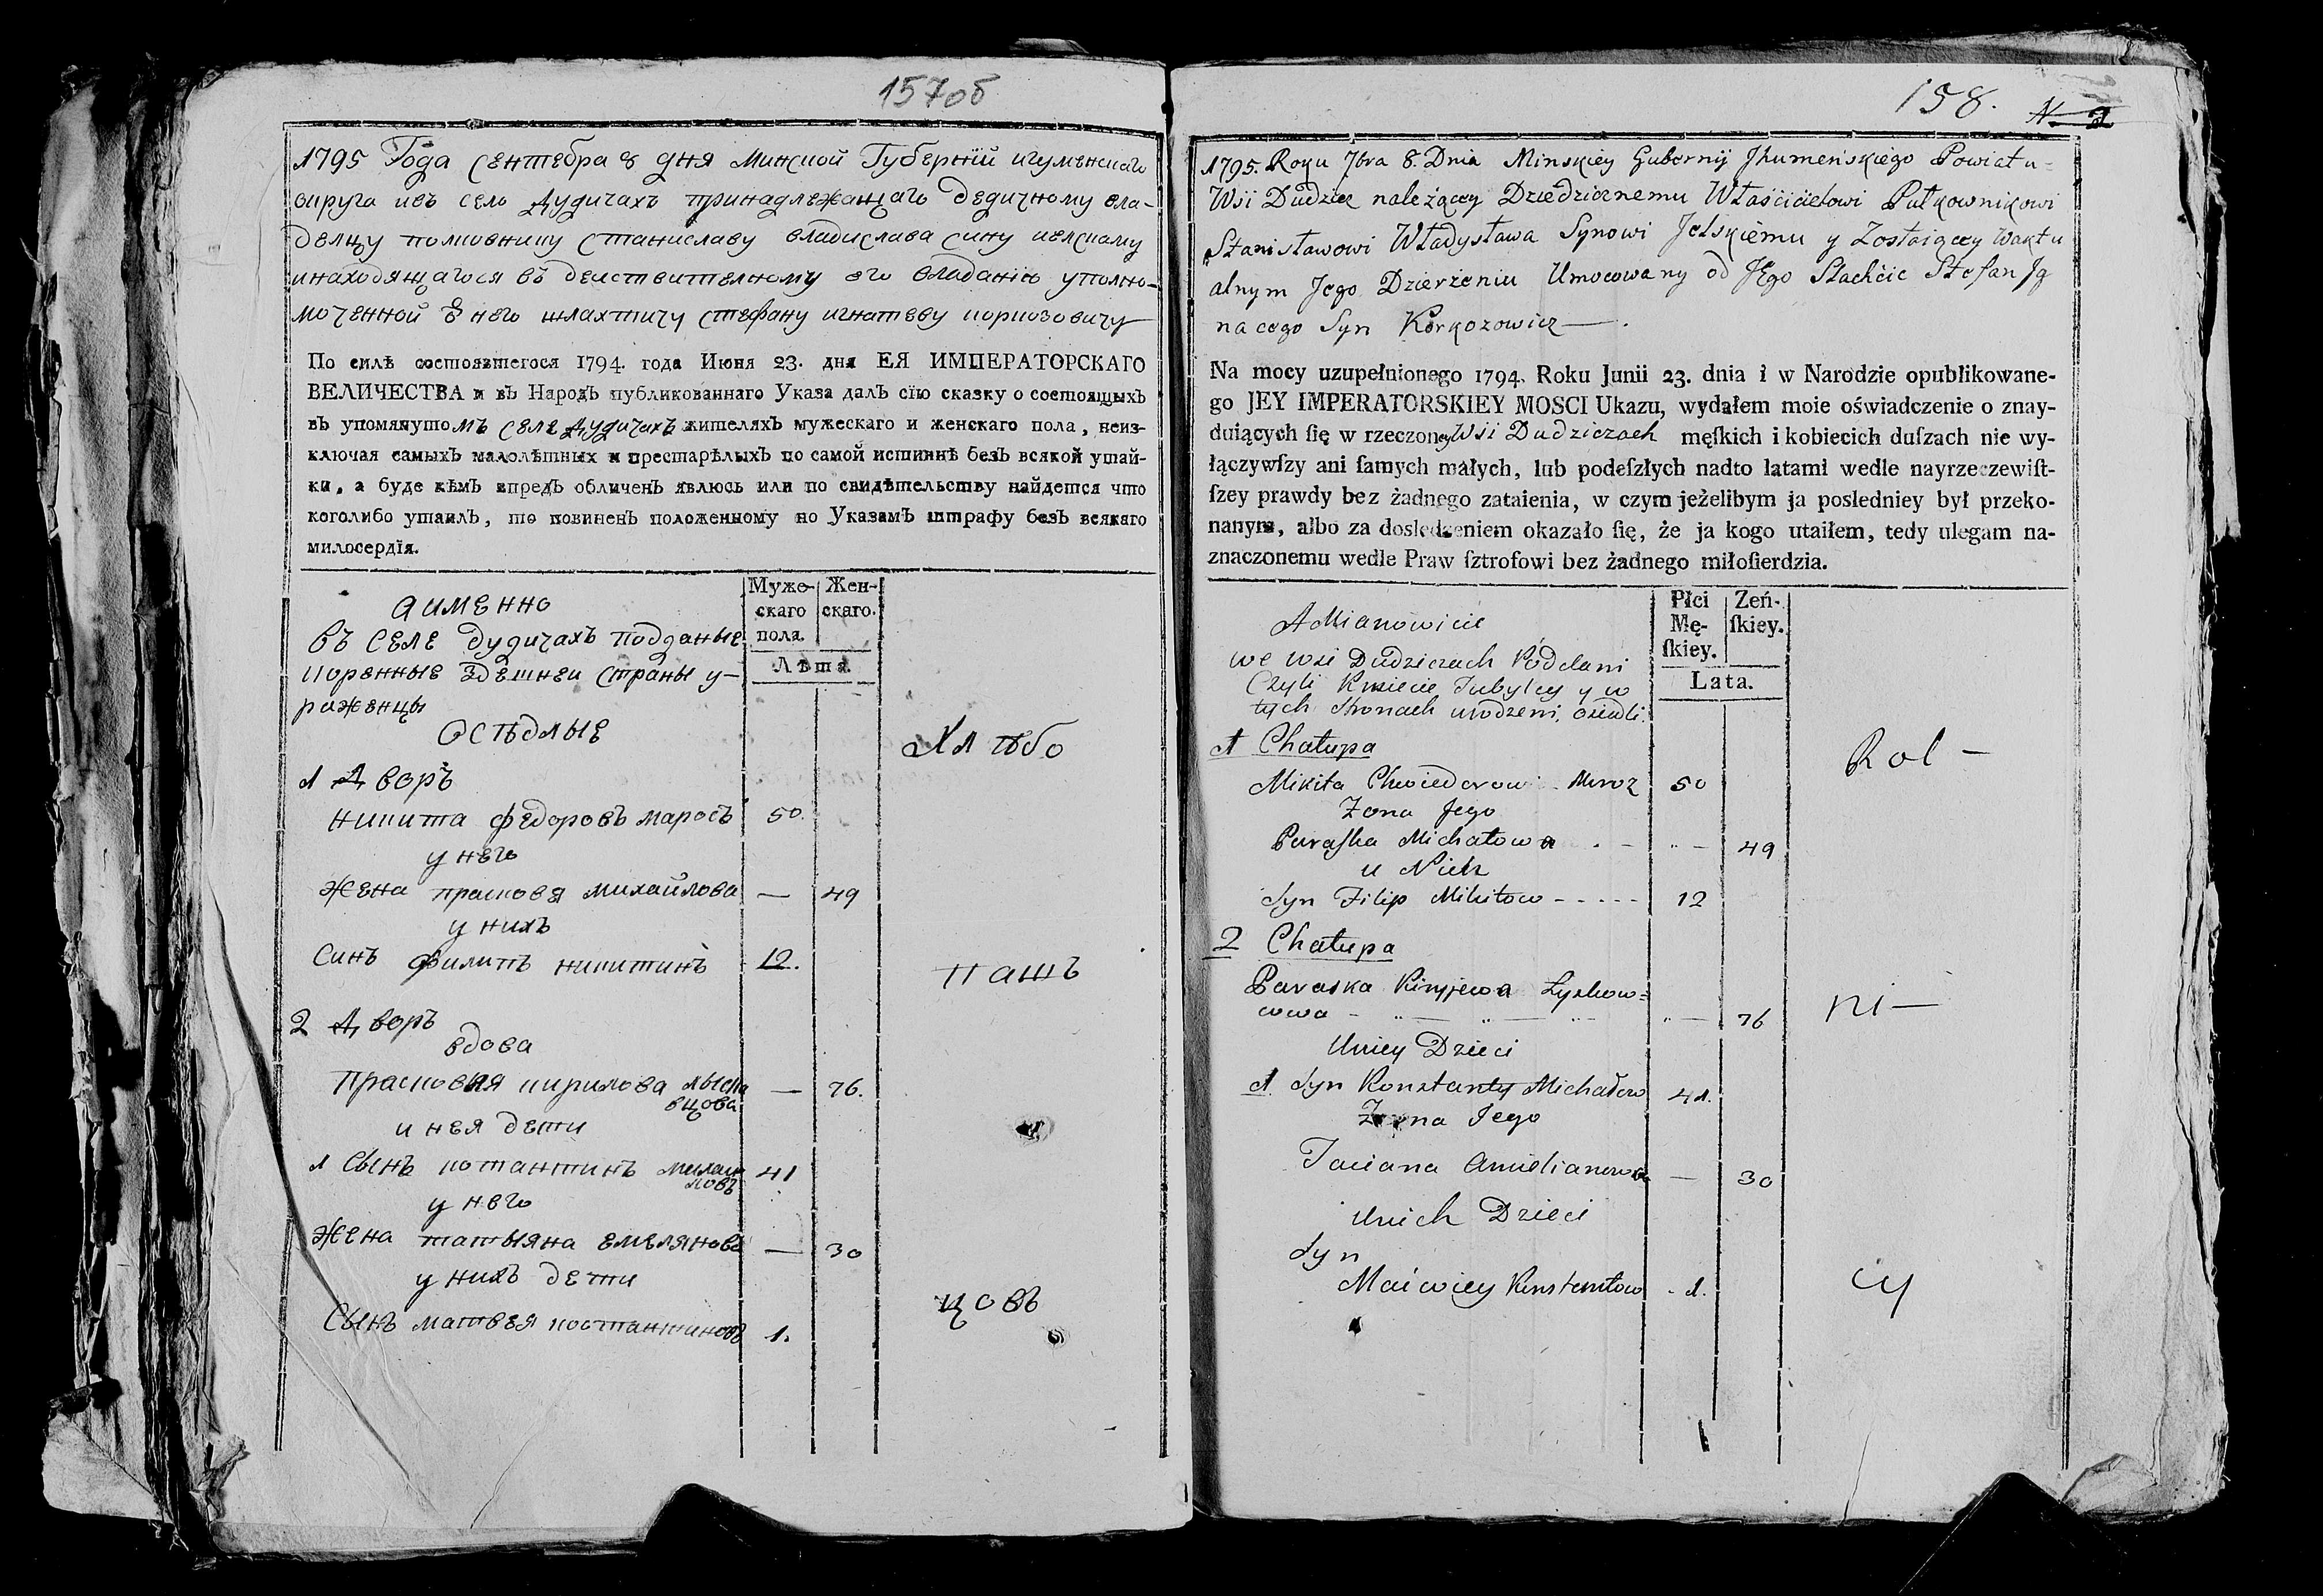 157об
1795 Года сентебра 8 дня минской Губерніи игуменскаго
округа изъ село Дудичахъ принадлежащаго дедичному вла-
делцу полковнику станиславу владислава сину иелскому
инаходящагося въ деиствителному его владанію уполно-
моченной Ѿ него шлахтичу стефану игнатеву коркозовичу
По силѣ состоявшегося 1794. года Июня 23. дня ЕЯ ИМПЕРАТОРСКАГО
ВЕЛИЧЕСТВА и въ Народъ публикованнаго Указа далъ сїю сказку о состоящыхъ
въ упомянутомъ селе Дудичахъ жителяхъ мужескаго и женскаго пола, неиз-
ключая самыхъ малолѣтныхъ и престарѣлыхъ по самой истиннѣ безъ всякой утай-
ки, а буде кѣмъ впредъ обличенъ явлюсь или по свидѣтельству найдется что
коголибо утаилъ, то повиненъ положенному по Указамъ штрафу безъ всякаго
милосердїя.
Муже-
скаго
пола.
Жен-
скаго.
Лѣта.
аименно
въ селе дудичахъ подданые
коренные здешнеи страны у-
раженцы
осѣдлые
Хлѣбо
1 Дворъ
никита федоровъ маросъ 50.
у него
жена прасковя михайлова — 49
у нихъ
синъ филипъ никитинъ 12.
пашъ
2 Дворъ
вдова
прасковяя кирилова лыско
вцова — 76.
и нея дети
1 сынъ костантинъ михаи
ловъ 41
у него
жена татыяна емелянова — 30
у нихъ дети
цовъ
сынъ матвея костантиновъ 1.
158. N 2
1795. Roku 7bra 8. Dnia Minskiey Gubernij Jhumeńskiego Powiatu
Wsi Dudzicz należącey Dziedzicznemu Właścicielowi Pułkownikowi
Stanisławowi Władysława Synowi Jelskiemu y Zostaiącey waktu
alnym Jego Dzierżeniu Umocowany od JEgo Slachcic Stefan Jg
nacego Syn Korkozowicz —.
Na mocy uzupełnionego 1794. Roku Junii 23. dnia i w Narodzie opublikowane-
go JEY IMPERATORSKIEY MOSCI Ukazu, wydałem moie oświadczenie o znay-
duiących ſię w rzeczoney Wsii Dudziczach męſkich i kobiecich duſzach nie wy-
łączywſzy ani ſamych małych, lub podeſzłych nadto latami wedle nayrzeczewiſt-
ſzey prawdy bez żadnego zataienia, w czym jeżelibym ja posledniey był przeko-
nanym, albo za dosledzeniem okazało ſię, że ja kogo utaiłem, tedy ulegam na-
znaczonemu wedle Praw ſztrofowi bez żadnego miłoſierdzia.
Płci
Mę-
ſkiey.
Zeń-
ſkiey.
Lata.
A Mianowicie
we wsi Dudziczach Poddani
Czyli Kmiecie Tubylcy y w
tych stronach urodzeni, osiedli.
1 Chałupa
Rol —
Mikita Chwiedorow Mroz 50
Zona Jego
Paraſka Michałowa 49
u Nich
Syn Filip Mikitow - - - - - 12
2 Chałupa
Paraska Kiryjewa Łyskow=
cowa 76
ni —
Uniey Dzieci
1. Syn Konstanty Michałow 41.
Zona Jego
Taciana Amielianowa — 30
Unich Dzieci
Syn
Maćwiey Konstantow 1.
cy